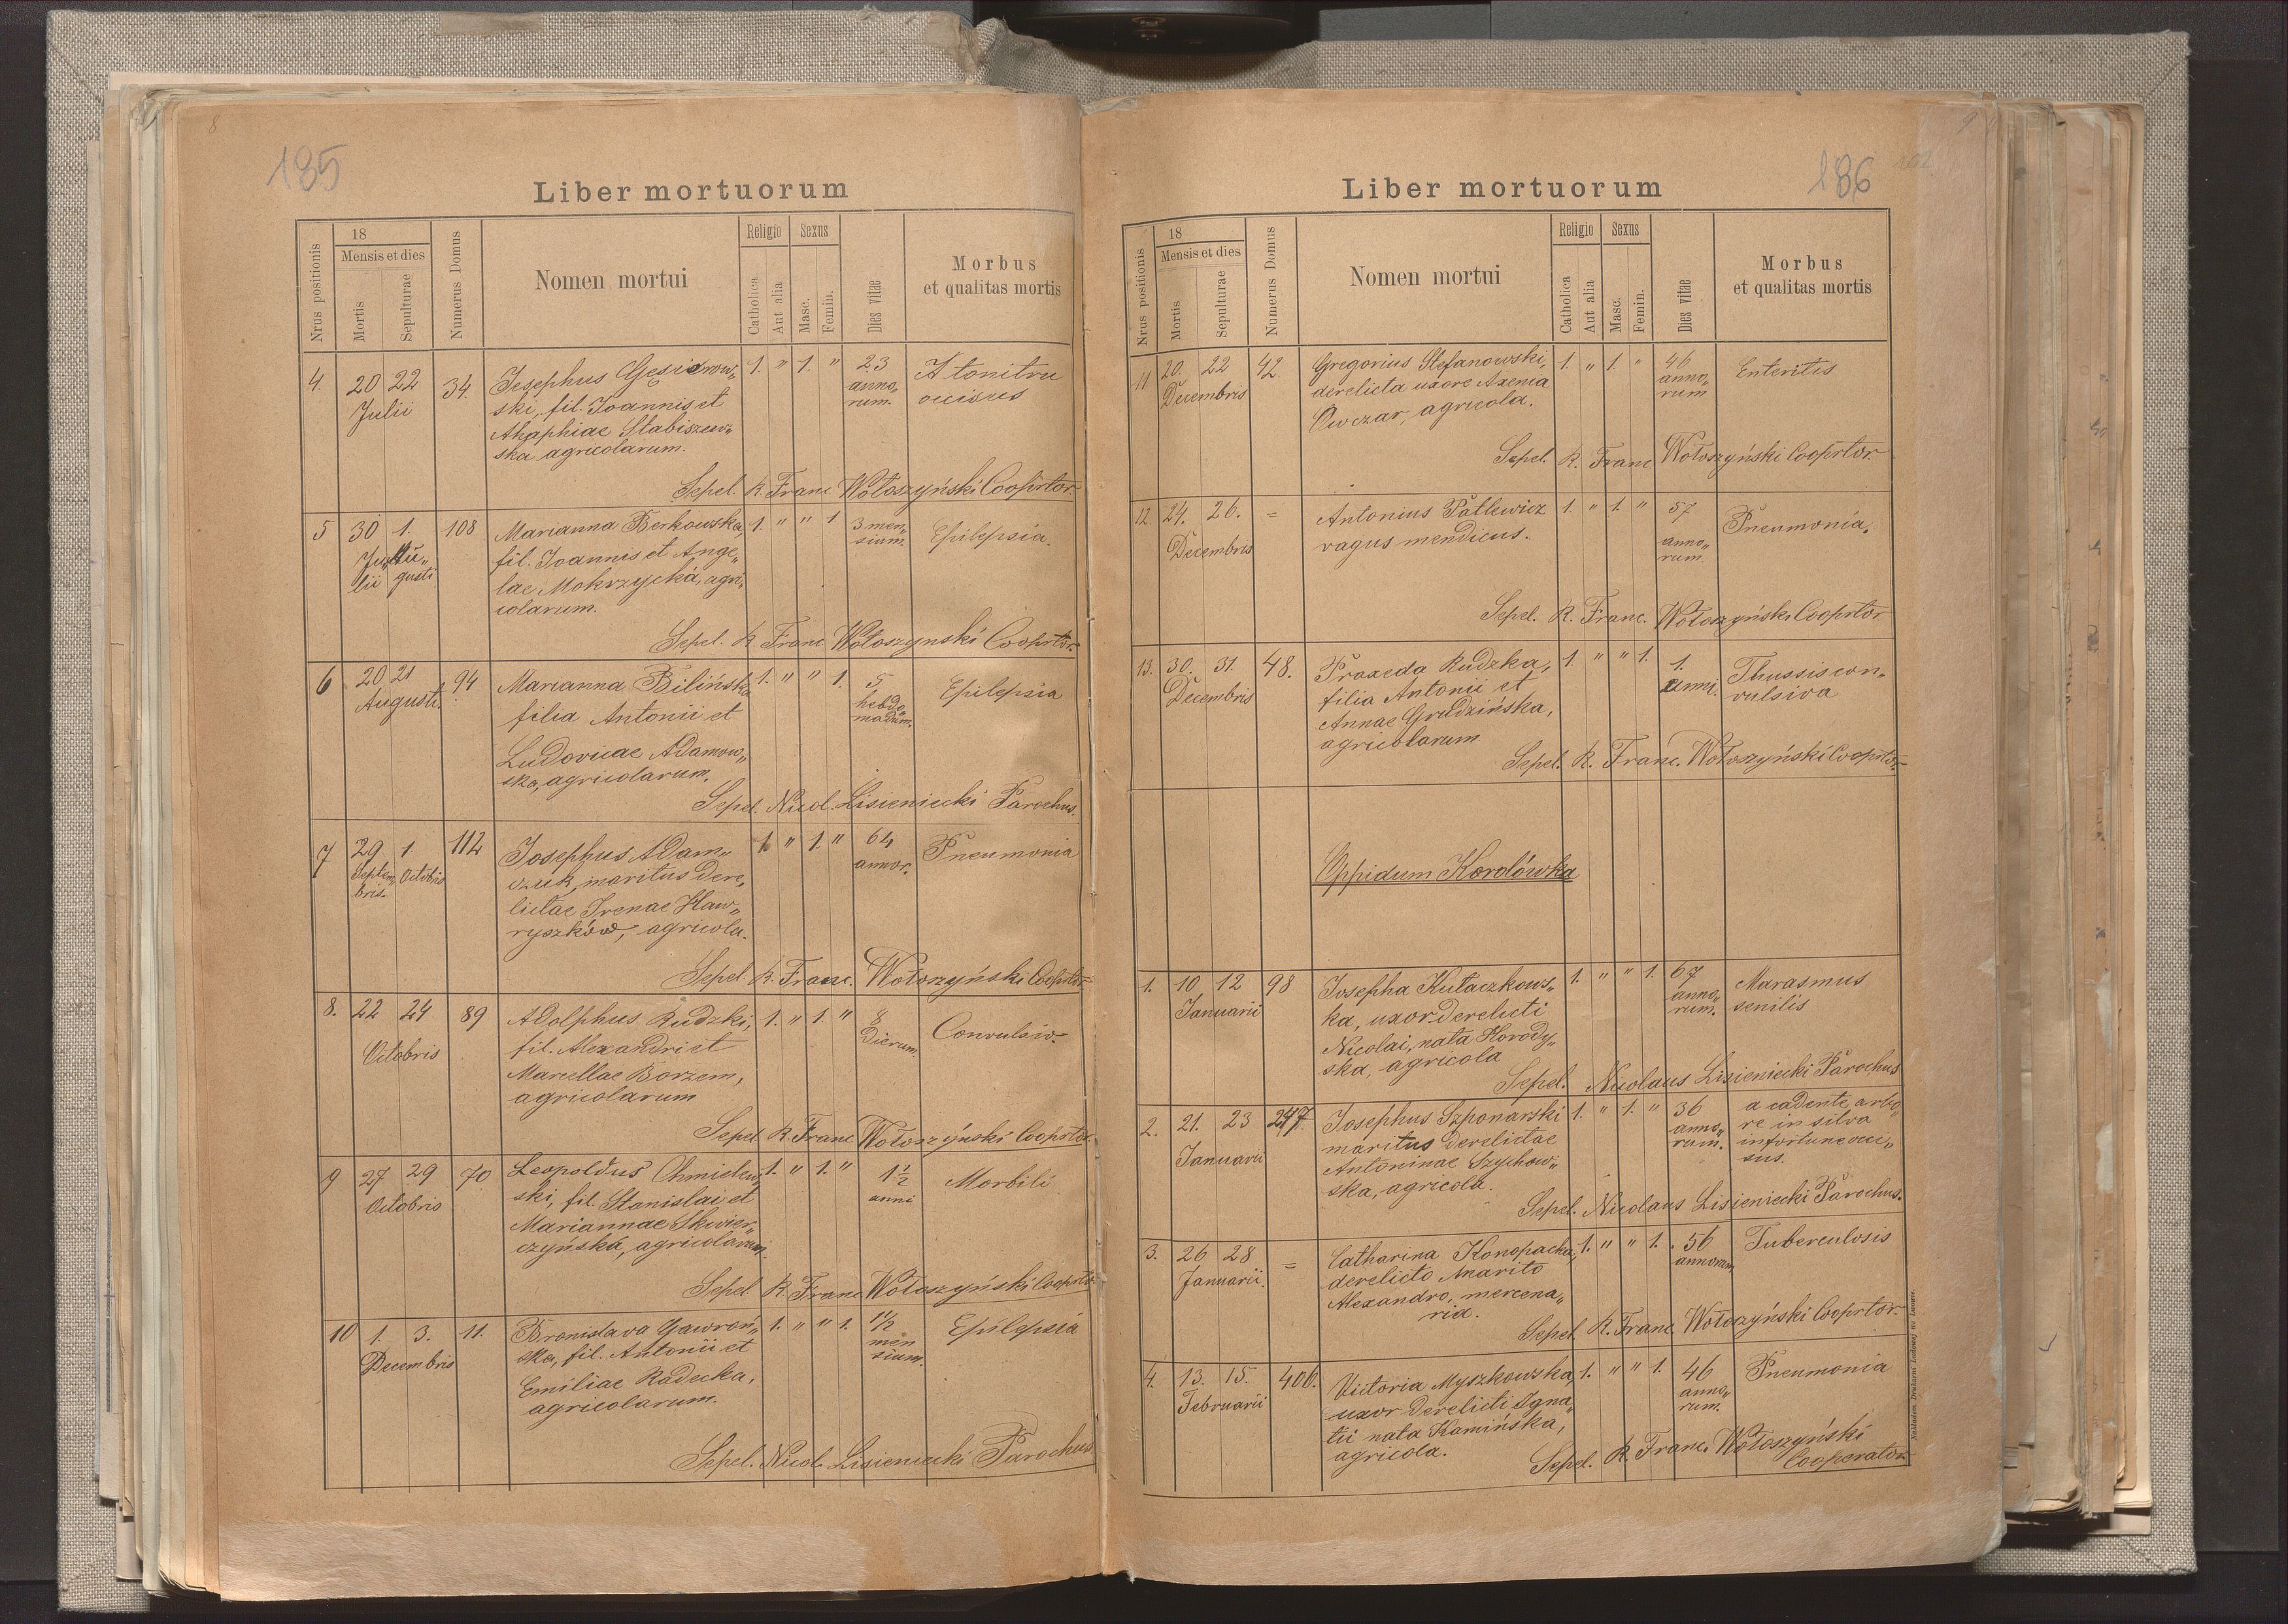 8
185
Liber mortuorum
Nrus positionis
18
Mensis et dies
Mortis
Sepulturae
Numerus Domus
Nomen mortui
Religio
Catholica
Aut alia
Sexus
Masc.
Femin.
Dies vitae
Morbus
et qualitas mortis
4. 20 22 34. Josephus Gęsiorow„ 1. " 1. " 23 A tonitru
Julii ski, fil. Joannis et anno„ occisus
Ahaphiae Stabiszew„ rum.
ska agricolarum.
Sepel. R. Franc Wołoszyński Cooprtor
5 30 1. 108 Marianna Berkowska, 1. " " 1 3 men„ Epilepsia.
Ju„ Au„ fil. Joannis et Ange„ sium.
lii gusti lae Mokrzycka, agri„
colarum.
Sepel. R. Franc Wołoszynski Cooprtor.
6 20 21 94 Marianna Bilińska 1. " " 1. 5 Epilepsia
Augusti. filia Antonii et hebdo„
Ludovicae Adamow„ madum.
ska, agricolarum.
Sepel. Nicol. Lisieniecki Parochus.
7 29 1. 112 Josephus Adam„ 1. " 1. " 64 Pneumonia
Septem„ Octobris czuk, maritus dere„ annor.
bris. lictae Irenae Haw„
ryszków, agricola.
Sepel R. Franc. Wołoszyński Cooprtor
8. 22 24 89 Adolphus Rudzki, 1. " 1. " 8 Convulsio.
Octobris fil. Alexandri et dierum
Marcellae Borzem,
agricolarum
Sepel R. Franc Wołoszyński Cooprtor.
9 27 29 70 Leopoldus Chmielew„ 1. " 1. " 1½ Morbili
Octobris ski, fil. Stanislai et anni
Mariannae Skwier„
czyńska, agricolarum.
Sepel R. Franc Wołoszyński Cooprtor
10 1. 3. 11. Bronislava Gawroń„ 1. " " 1. 1½ Epilepsia
Decembris ska, fil. Antonii et men
Emiliae Radecka, sium.
agricolarum.
Sepel. Nicol. Lisieniecki Parochus
9
186
Liber mortuorum
Nrus positionis
18
Mensis et dies
Mortis
Sepulturae
Numerus Domus
Nomen mortui
Religio
Catholica
Aut alia
Sexus
Masc.
Femin.
Dies vitae
Morbus
et qualitas mortis
11 20. 22 42. Gregorius Stefanowski, 1. " 1. " 46 Enteritis
Decembris derelicta uxore Axenia anno„
Owczar, agricola. rum
Sepel. R. Franc Wołoszyński Cooprtor.
12. 24. 26. = Antonius Patlewicz 1. " 1. " 57 Pneumonia.
Decembris vagus mendicus. anno„
rum.
Sepel. R. Franc. Wołoszyński Cooprtor
13. 30. 31. 48. Praxeda Rudzka, 1. " " 1. 1. Thussis con„
Decembris filia Antonii et anni. vulsiva
Annae Grudzińska,
agricolarum.
Sepel. R. Franc. Wołoszyński Cooprtor.
Oppidum Korolówka
1. 10 12 98 Josepha Kutaczkows„ 1. " " 1. 67 Marasmus
Januarii ka, uxor derelicti anno„ senilis
Nicolai, nata Horody„ rum.
ska, agricola
Sepel. Nicolaus Lisieniecki Parochus
2. 21. 23 247 Josephus Szponarski 1. " 1. " 36 a cadente arbo„
Januarii maritus derelictae anno„ re in silva
Antoninae Szychow„ rum. infortune occi„
ska, agricola. sus.
Sepel. Nicolaus Lisieniecki Parochus.
3. 26 28 = Catharina Konopacka, 1. " " 1. 56 Tuberculosis
Januarii. derelicto marito annorum
Alexandro, mercena„
ria.
Sepel. R. Franc Wołoszyński Cooprtor.
4. 13. 15. 406. Victoria Myszkowska, 1. " " 1. 46 Pneumonia
Februarii uxor derelicti Igna„ anno„
tii nata Kamińska, rum.
agricola.
Sepel. R. Franc. Wołoszyński
Cooperator.
Nakładem Drukarni Ludowej we Lwowie.